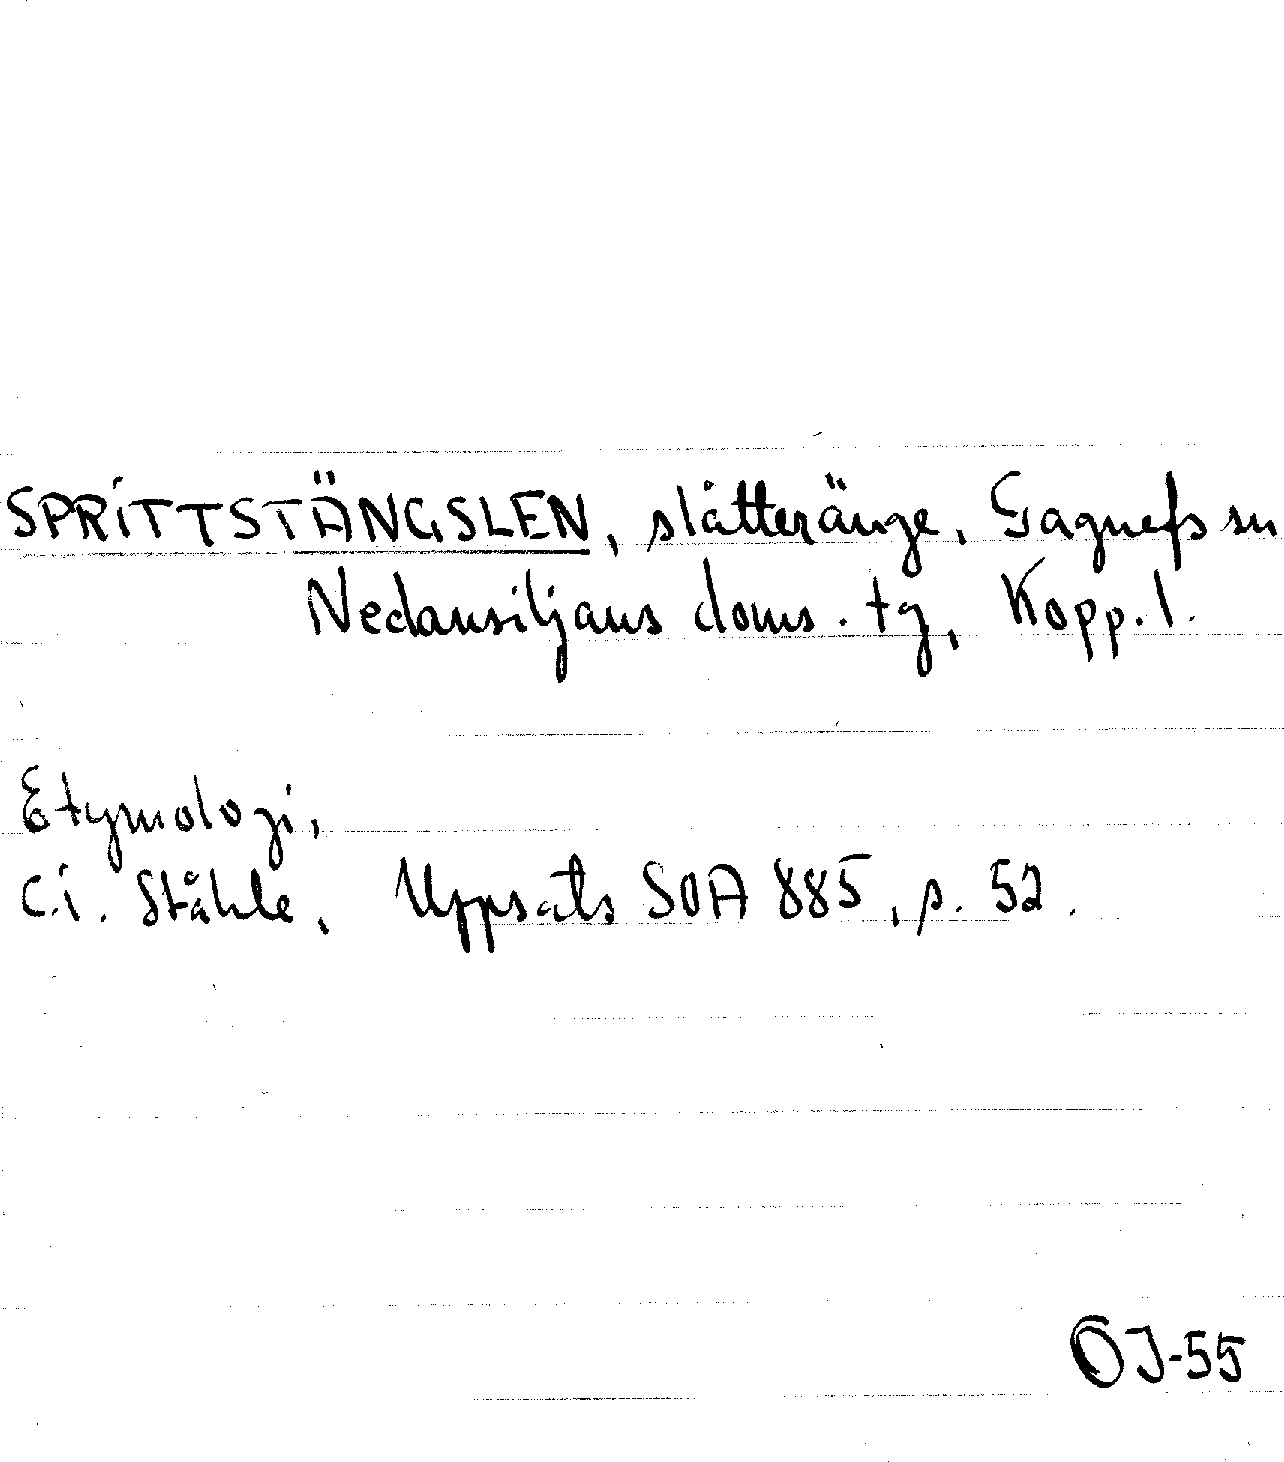 SPRITTSTÄNGSLEN, slåtteränge, Gagnefs sn
Nedansiljans doms. tg, Kopp. l.
Etymologi,
C.I. Ståhle, Uppsats SOA 885, s. 52.
OJ-55